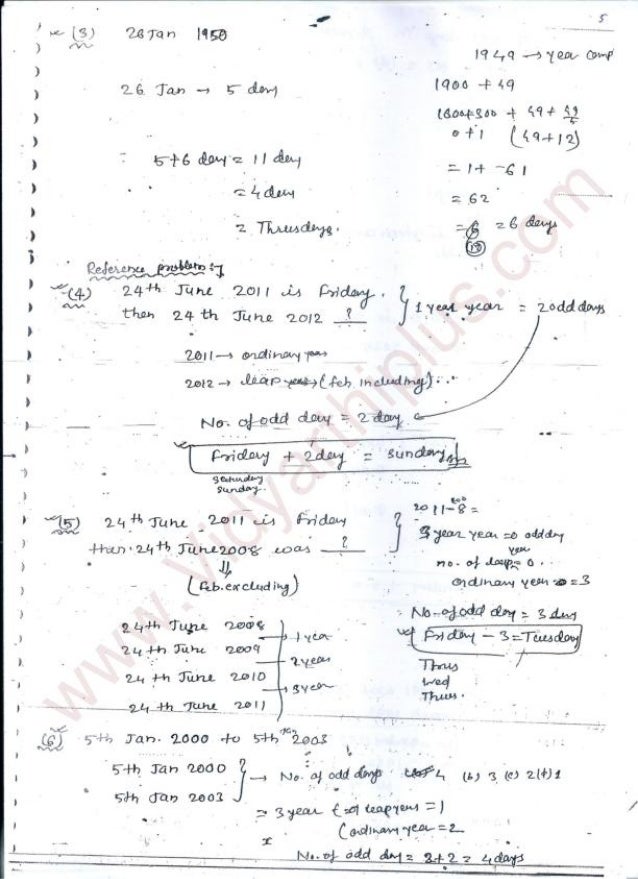 5
(3) 26 Jan 1950
1949 → year comp
26 Jan → 5 day
1900 + 49
1600+300 + 49 + 49/4
0+1 (49+12)
5+6 day = 11 day
= 1+ -61
= 4 day
= 62
= Thrusdays.
= 6 = 6 days
Reference problem :-
(4) 24th June 2011 is Friday.
then 24 th June 2012 ?
1 year year = 2 odd days
2011 → ordinary year
2012 → leap year → (feb. including)
No. of odd day = 2 day
Friday + 2 day = Sunday
Saturday
Sunday
(5) 24th June 2011 is Friday
than 24th June 2008 was ?
(Feb. excluding)
2011-8 =
3 year year = 0 odd day
no. of leap year = 0
ordinary year = 3
No. of odd day = 3 days
Friday - 3 = Tuesday
Thrus
Wed
Thues.
24th June 2008
24th June 2009
24 th June 2010
24 th June 2011
1 year
2 year
3 year
(6) 5th Jan. 2000 to 5th Jan 2003
5th Jan 2000
5th Jan 2003
→ No. of odd days 4 (b) 3 (c) 2 1
= 3 year
leap years = 1
ordinary year = 2
No. of odd day = 2+2 = 4 days
www.vidyarthiplus.com